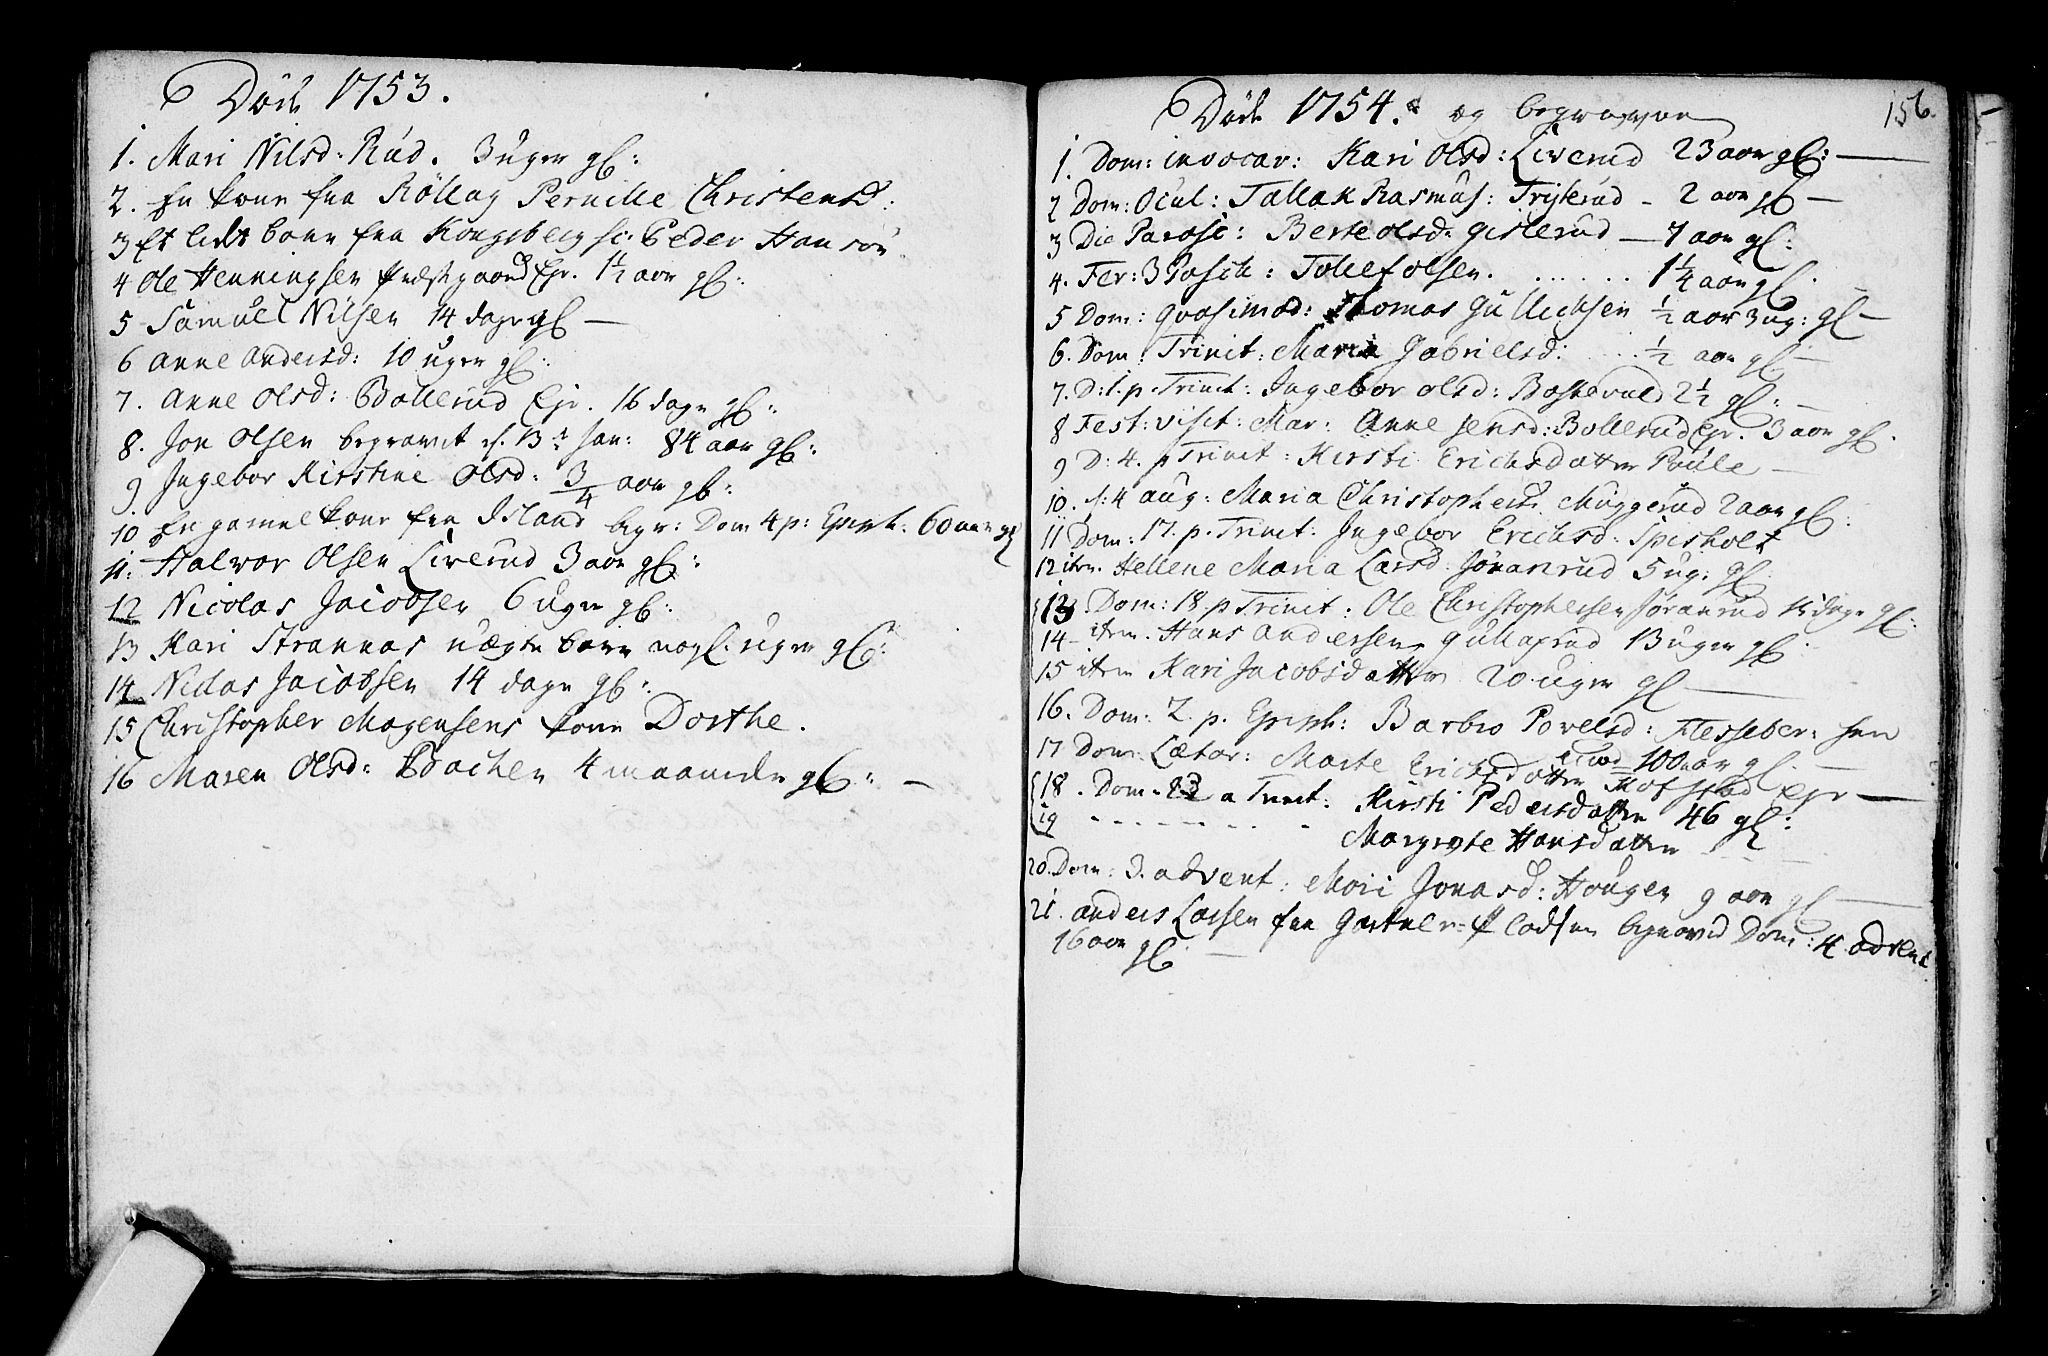 Døde 1753.
1. Mari Nilsd: Rud. 3 uger gl:
2. En kone fra Rollag Pernille Christensd:
3 Et lidt barn fra Kongsberg sc: Peder Hansøn
4 Ole Henningsen Præstgaard Ejr. 1½ aar gl:
5 Samuel Nilsen 14 dage gl —
6 Anne Andersd: 10 uger gl:
7. Anne Olsd: Bollerud Ejr. 16 dage gl:
8. Jon Olsen begravet d. 13 Jan: 84 aar gl:
9 Ingebor Kirstine Olsd: 3/4 aar gl:
10 En gamel kone fra Island begr: Dom 4 p: Epiph: 60 aar gl
11. Halvor Olsen Liverud 3 aar gl:
12 Nicolas Jacobsen 6 uger gl:
13 Kari Strannas uægte barn nogl. uger gl:
14 Niclas Jacobsen 14 dage gl:
15 Christopher Mogensens kone Dorthe.
16 Maren Olsd: Bachen 4 maaneder gl: —
156.
Døde 1754. og begraven
1. Dom: invocav: Kari Olsd: Liverud 23 aar gl: —
2 Dom: Ocul: Tallak Rasmus: Trysterud - 2 aar gl —
3 Die Parasc: Berte Olsd: Gislerud — 7 aar gl:
4. Fer: 3 Pasch: Tollef Olsen. . . . . . . 1¼ aar gl.
5 Dom: Qvasimod: Thomas Gullichsen ½ aar 3 ug: gl —
6. Dom: Trinit: Maria Gabrielsd: . . . ½ aar gl —
7. D: 1. p. Trinit: Ingebor Olsd: 2½ gl: —
8 Fest: visit: Mar: Anne Jensd: Bollerud Ejr. 3 aar gl.
9 D: 4. p Trinit: Kirsti Erichsdatter Poule —
10. d: 4 aug: Maria Christophersd. Muggerud 2 aar gl:
11 Dom: 17. p. Trinit: Ingebor Erichsd: Spisholt
12 item. Hellene Maria Larsd: Jøranrud 5 ug: gl
13 Dom: 18. p Trinit: Ole Christophersen Jøranrud dage gl:
14 - item. Hans Andersen Gullaprud 13 uger gl.
15 item Kari Jacobsdatter 20 uger gl —
16. Dom: 2. p. Epiph: Barbro Povelsd: Flesseber:
17 Dom: Lætar: Marte Erichsdatter Mofstad Ejr —
100 aar gl. —
18. Dom. a Trinit: Kirsti Pedersdatter 46 gl:
19 - - - - - - - Margrete Hansdatter - - - —
20. Dom: 3. advent: Mari Jonasd: Hougen 9 aar gl —
21. Anders Larsen fra Gartner-Pladsen begraved Dom: 4. advent
16 aar gl. —